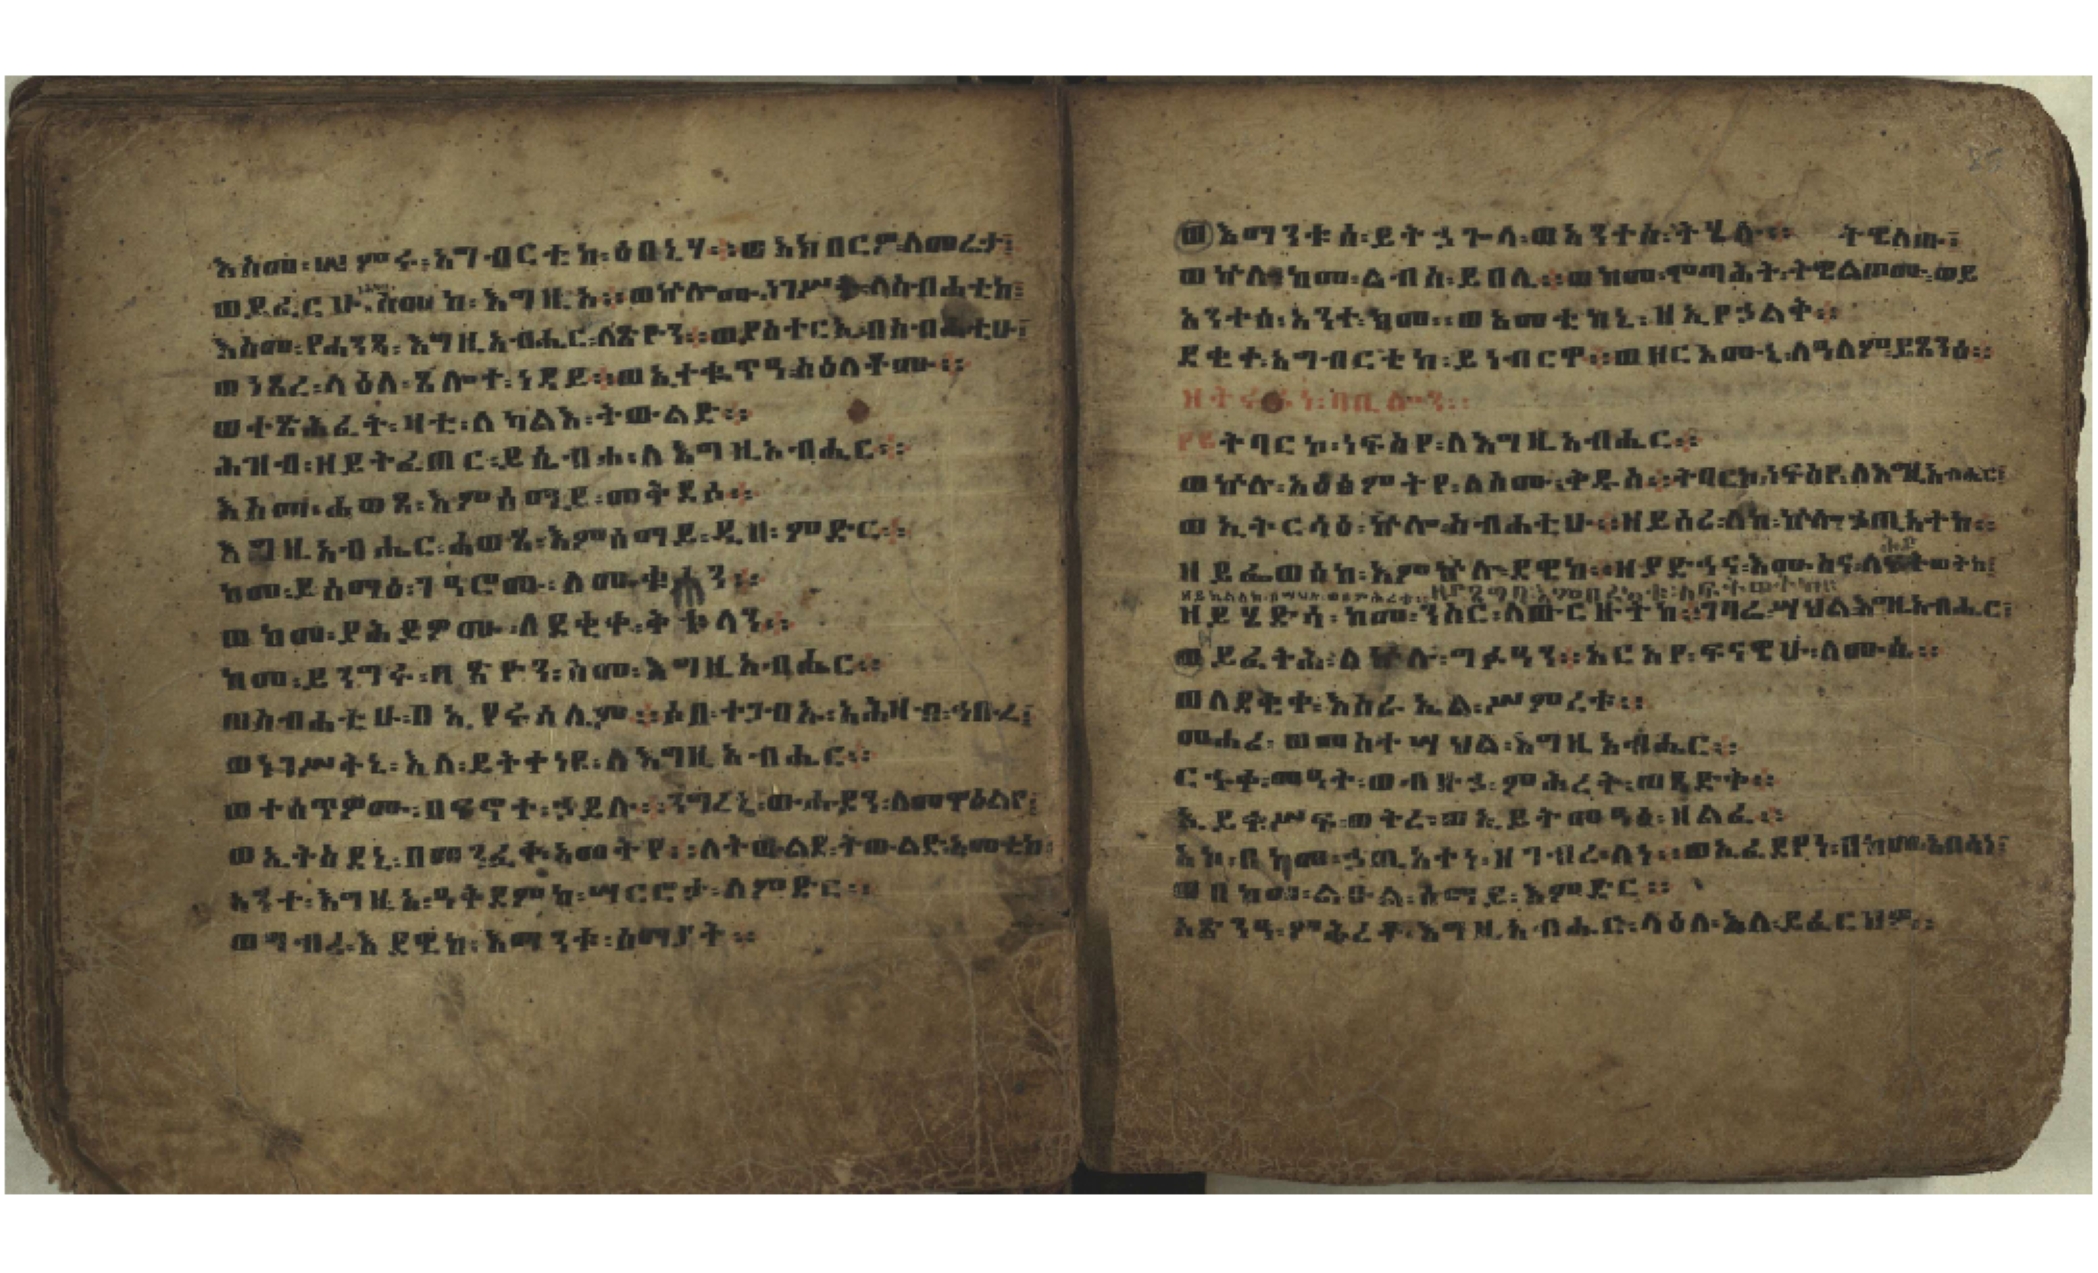 እስመ፡ሠምሩ፡አግብርቲከ፡ዕበኒሃ፡፡ወአክበርዎ፡ለመሬታ፤
ወይፈርሁ፡ስመከ፡እግዚአ፡፡ወኵሎሙ፡ነገሥት፡ለስብሐቲከ፤
እስመ፡የሐንጻ፡እግዚአብሔር፡ለጽዮን፡፡ወያስተርኢ፡በስብሐቲሁ፤
ወነጸረ፡ላዕለ፡ጸሎተ፡ነዳይ፡፡ወኢተቈጥዓ፡ስዕለቶሙ፡፡
ወተጽሕፈት፡ዛቲ፡ለካልእ፡ትውልድ፡፡
ሕዝብ፡ዘይትፈጠር፡ይሴብሖ፡ለእግዚአብሔር፡፡
እስመ፡ሐወጸ፡እምሰማይ፡መቅደሱ፡፡
እግዚአብሔር፡ሐወጸ፡እምሰማይ፡ዲበ፡ምድር፡፡
ከመ፡ይስማዕ፡ገዓሮሙ፡ለሙቁሓን፡፡
ወከመ፡ያሕይዎሙ፡ለደቂቀ፡ቅቱላን፡፡
ከመ፡ይንግሩ፡በጽዮን፡ስመ፡እግዚአብሔር፡፡
ወስብሐቲሁ፡በኢየሩሳሌም፡፡ሶበ፡ተጋብኡ፡አሕዛብ፡ኅቡረ፤
ወነገሥትኒ፡እለ፡ይትቀነዩ፡ለእግዚአብሔር፡፡
ወተሰጥዎሙ፡በፍኖተ፡ኃይሉ፡፡ንግረኒ፡ውሑዳን፡ለመዋዕልየ፤
ወኢትስደኒ፡በመንፈቀ፡አመትየ፡፡ለትውልደ፡ትውልድ፡አመቲከ፡
አንተ፡እግዚአ፡ዓቅደምከ፡ሣርሮታ፡ለምድር፡፡
ወግብረ፡እደዊከ፡እማንቱ፡ሰማያት፡፡
ወእማንቱሰ፡ይትኃጐላ፡ወአንተሰ፡ትሄሉ፡፡ ትዌለጡ፤
ወኵሉ፡ከመ፡ልብስ፡ይበሊ፡፡ወከመ፡ሞጣሕት፡ትዌልጦሙ፡ወይ
አንተሰ፡አንተ፡ክመ፡፡ወአመቲከኒ፡ዘኢየኃልቅ፡፡
ደቂቀ፡አግብርቲከ፡ይነብርዋ፡፡ወዘርእሙኒ፡ለዓለም፡ይጸንዕ፡፡
ትባርኮ፡ነፍስየ፡ለእግዚአብሔር፡፡
ወኵሉ፡አዕፅምትየ፡ለስሙ፡ቅዱስ፡፡ትባርኮ፡ነፍስየ፡ለእግዚአብሔር፤
ወኢትርሳዕ፡ኵሎ፡ስብሐቲሁ፡፡ዘይሰሪ፡ለከ፡ኵሎ፡ኃጢአተከ፡፡
ዘይፌውሰከ፡እምኵሉ፡ደዌከ፡፡ዘያድኅና፡እሙስና፡ለሕይወትከ፤
ዘያጸግባ፡እምበረከቱ፡ለፍትወትከ፡፡
ዘይሄድሳ፡ከመ፡ንስር፡ለውርዙትከ፡፡ገባሬ፡ሣህል፡እግዚአብሔር፤
ወይፈትሕ፡ለኵሉ፡ግፉዓን፡፡አርአየ፡ፍናዊሁ፡ለሙሴ፡፡
ወለደቂቀ፡እስራኤል፡ሥምረቱ፡፡
መሐሪ፡ወመስተሣህል፡እግዚአብሔር፡፡
ርኁቀ፡መዓት፡ወብዙኃ፡ምሕረት፡ወጻድቅ፡፡
ኢይቀሥፍ፡ወትረ፡ወኢይትመዓዕ፡ዘልፈ፡፡
አኮ፡በከመ፡ኃጢአተነ፡ዘገብረ፡ለነ፡፡ወኢፈደየነ፡በከመ፡አበሳነ፤
ወበከመ፡ልዑል፡ሰማይ፡እምድር፡፡
አጽንዓ፡ምሕረቶ፡እግዚአብሔር፡ላዕለ፡እለ፡ይፈርህዎ፡፡